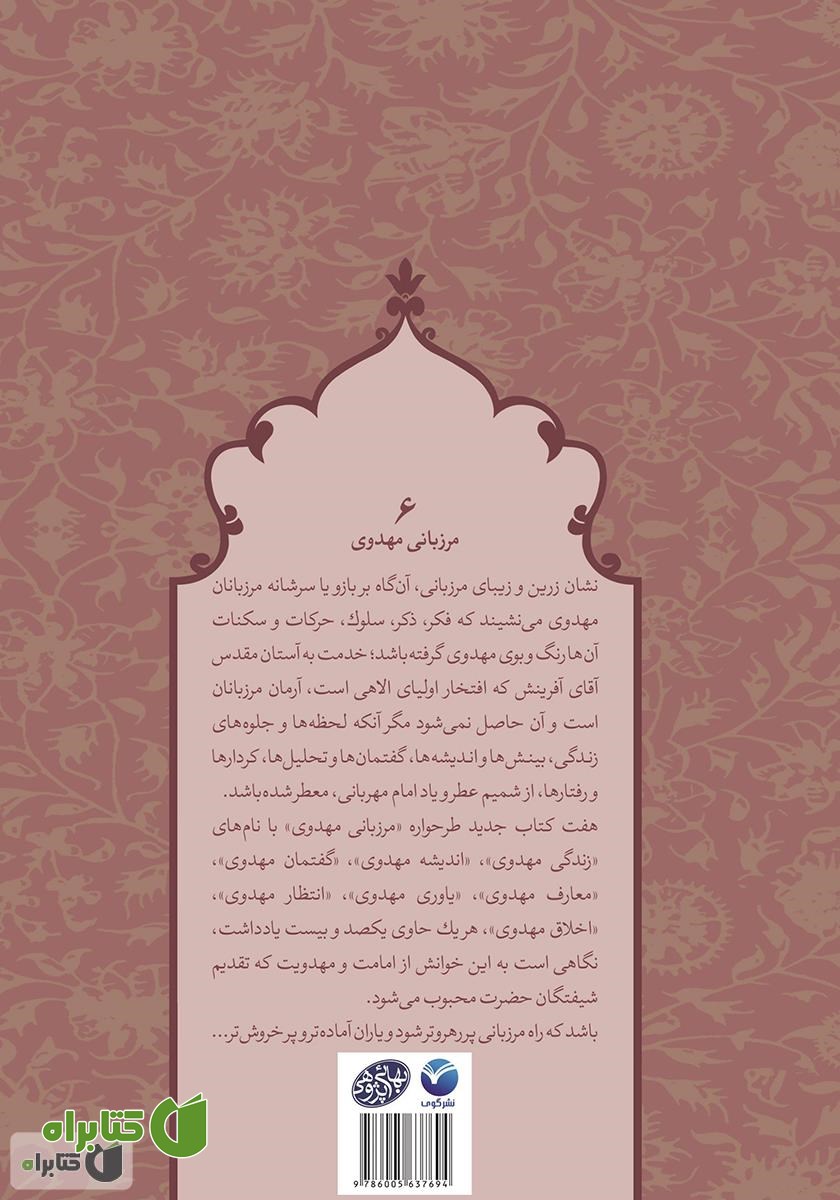 ۶
مرزبانی مهدوی
نشان زرین و زیبای مرزبانی، آن‌گاه بر بازو یا سرشانه مرزبانان
مهدوی می‌نشیند که فکر، ذکر، سلوك، حرکات و سکنات
آن‌ها رنگ و بوی مهدوی گرفته باشد؛ خدمت به آستان مقدس
آقای آفرینش که افتخار اولیای الاهی است، آرمان مرزبانان
است و آن حاصل نمی‌شود مگر آنکه لحظه‌ها و جلوه‌های
زندگی، بینش‌ها و اندیشه‌ها، گفتمان‌ها و تحلیل‌ها، کردارها
و رفتارها، از شمیم عطر و یاد امام مهربانی، معطر شده باشد.
هفت کتاب جدید طرحواره «مرزبانی مهدوی» با نام‌های
«زندگی مهدوی»، «اندیشه مهدوی»، «گفتمان مهدوی»،
«معارف مهدوی»، «یاوری مهدوی»، «انتظار مهدوی»،
«اخلاق مهدوی»، هر یك حاوی یکصد و بیست یادداشت،
نگاهی است به این خوانش از امامت و مهدویت که تقدیم
شیفتگان حضرت محبوب می‌شود.
باشد که راه مرزبانی پر رهروتر شود و یاران آماده‌تر و پر خروش‌تر...
بهائی پژوهی
نشر گوی
9 786005 637694
کتابراه
کتابراه